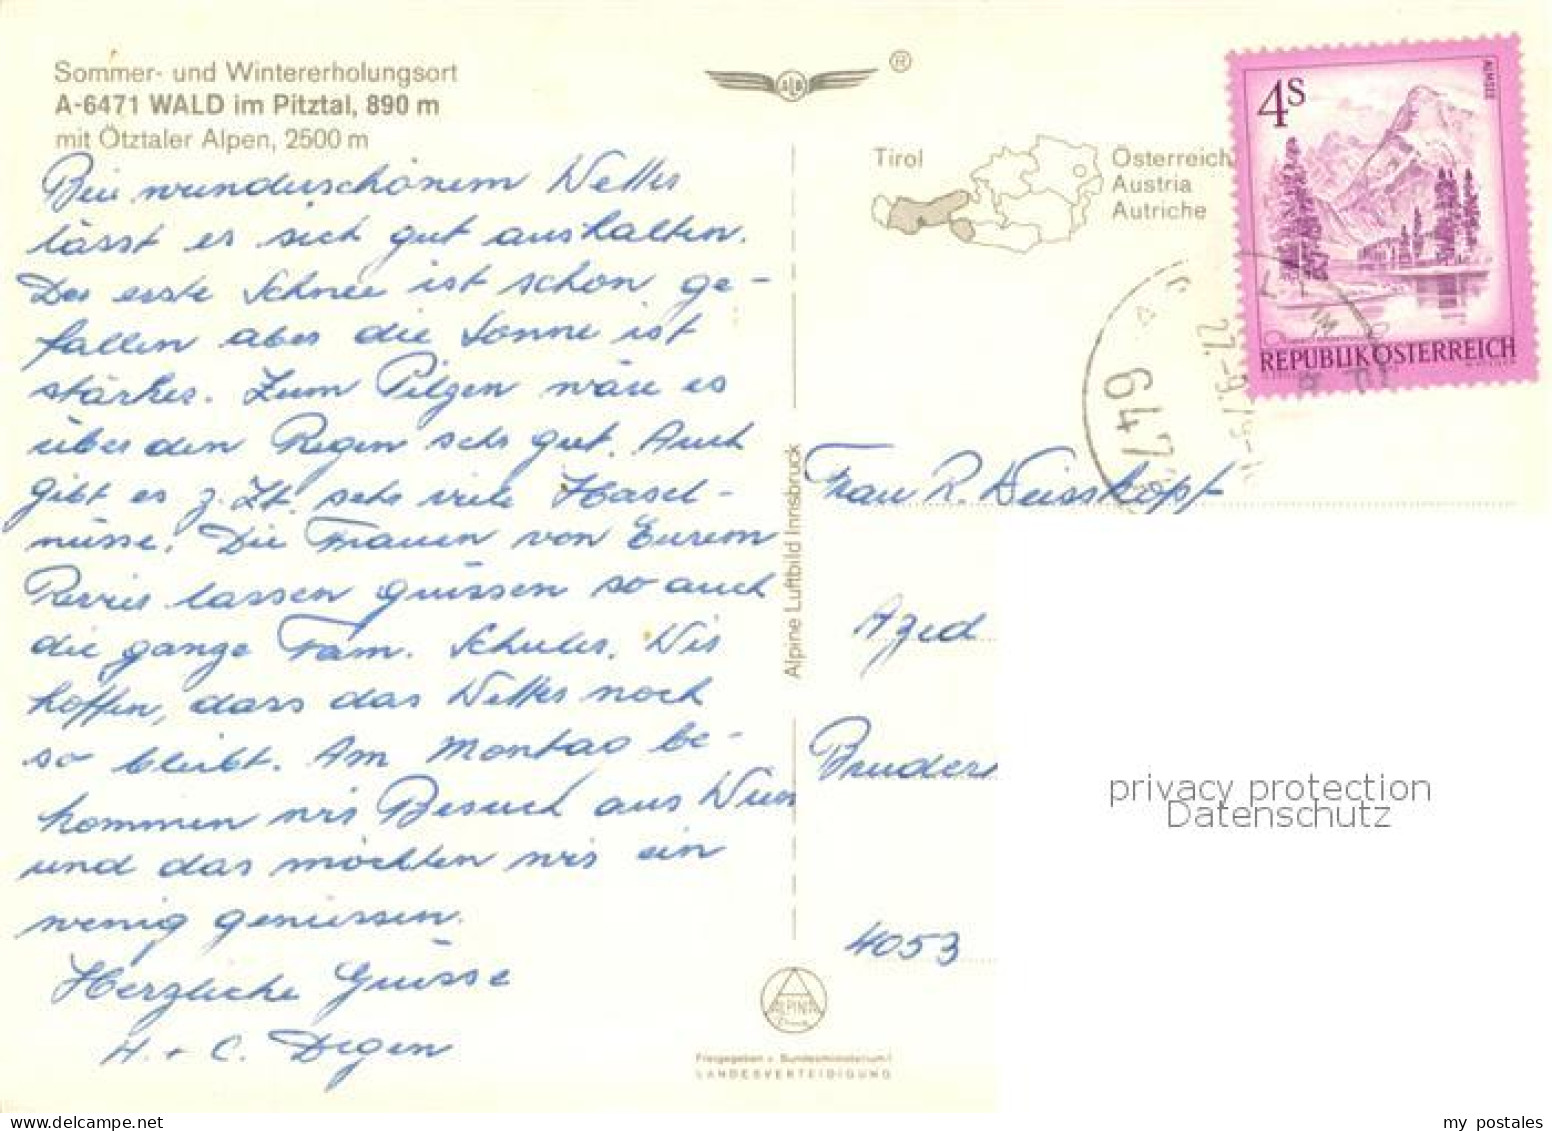 Sommer- und Wintererholungsort
A-6471 WALD im Pitztal, 890 m
mit Ötztaler Alpen, 2500 m
Bei wunderschönem Wetter
lässt es sich gut aushalten.
Der erste Schnee ist schon ge-
fallen aber die Sonne ist
stärker. Zum Pilzen wäre es
über den Regen sehr gut. Auch
gibt es z. Zt. sehr viele Hasel-
nüsse. Die Frauen von Eurem
Revier lassen grüssen so auch
die ganze Fam. Schuler. Wir
hoffen, dass das Wetter noch
so bleibt. Am Montag be-
kommen wir Besuch aus Wien
und das möchten wir ein
wenig geniessen.
Herzliche Grüsse
H. + C. Degen
ALB
®
Tirol
Österreich
Austria
Autriche
4S
ALMSEE
REPUBLIK ÖSTERREICH
6471
22.-9.79-
Alpine Luftbild Innsbruck
Frau R. Weisskopf
Azed
Bruder
4053
privacy protection
Datenschutz
ALPINA
Druck
Freigegeben v. Bundesministerium f.
LANDESVERTEIDIGUNG
my postales